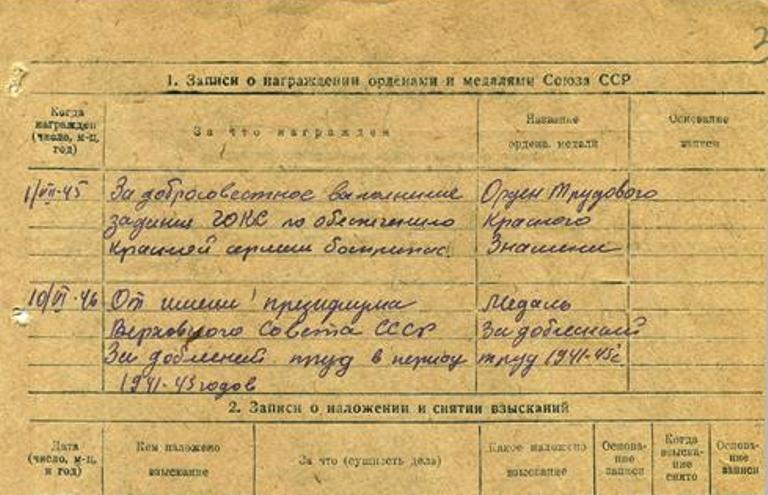 2
1. Записи о награждении орденами и медалями Союза ССР
Когда награжден (число, м-ц, год) За что награжден Название ордена, медали Основание записи
1/VII-45 За добросовестное выполнение Орден Трудового
задания ГОКС по обеспечению Красного
Красной армии боеприпас. Знамени
10/VI-46 От имени президиума Медаль
Верховного Совета СССР За доблесный
За доблесный труд в период труд 1941-45г.
1941-45 годов
2. Записи о наложении и снятии взысканий
Дата (число, м-ц, и год) Кем наложено взыскание За что (сущность дела) Какое наложено взыскание Основание записи Когда взыскание снято Основание записи